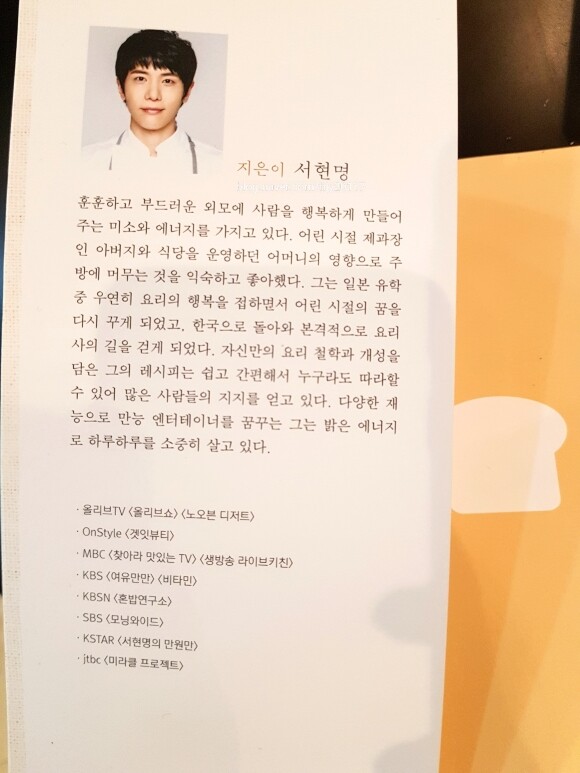 지은이 서현명
훈훈하고 부드러운 외모에 사람을 행복하게 만들어
주는 미소와 에너지를 가지고 있다. 어린 시절 제과장
인 아버지와 식당을 운영하던 어머니의 영향으로 주
방에 머무는 것을 익숙하고 좋아했다. 그는 일본 유학
중 우연히 요리의 행복을 접하면서 어린 시절의 꿈을
다시 꾸게 되었고, 한국으로 돌아와 본격적으로 요리
사의 길을 걷게 되었다. 자신만의 요리 철학과 개성을
담은 그의 레시피는 쉽고 간편해서 누구라도 따라할
수 있어 많은 사람들의 지지를 얻고 있다. 다양한 재
능으로 만능 엔터테이너를 꿈꾸는 그는 밝은 에너지
로 하루하루를 소중히 살고 있다.
· 올리브TV 〈올리브쇼〉 〈노오븐 디저트〉
· OnStyle 〈겟잇뷰티〉
· MBC 〈찾아라 맛있는 TV〉 〈생방송 라이브키친〉
· KBS 〈여유만만〉 〈비타민〉
· KBSN 〈혼밥연구소〉
· SBS 〈모닝와이드〉
· KSTAR 〈서현명의 만원만〉
· jtbc 〈미라클 프로젝트〉